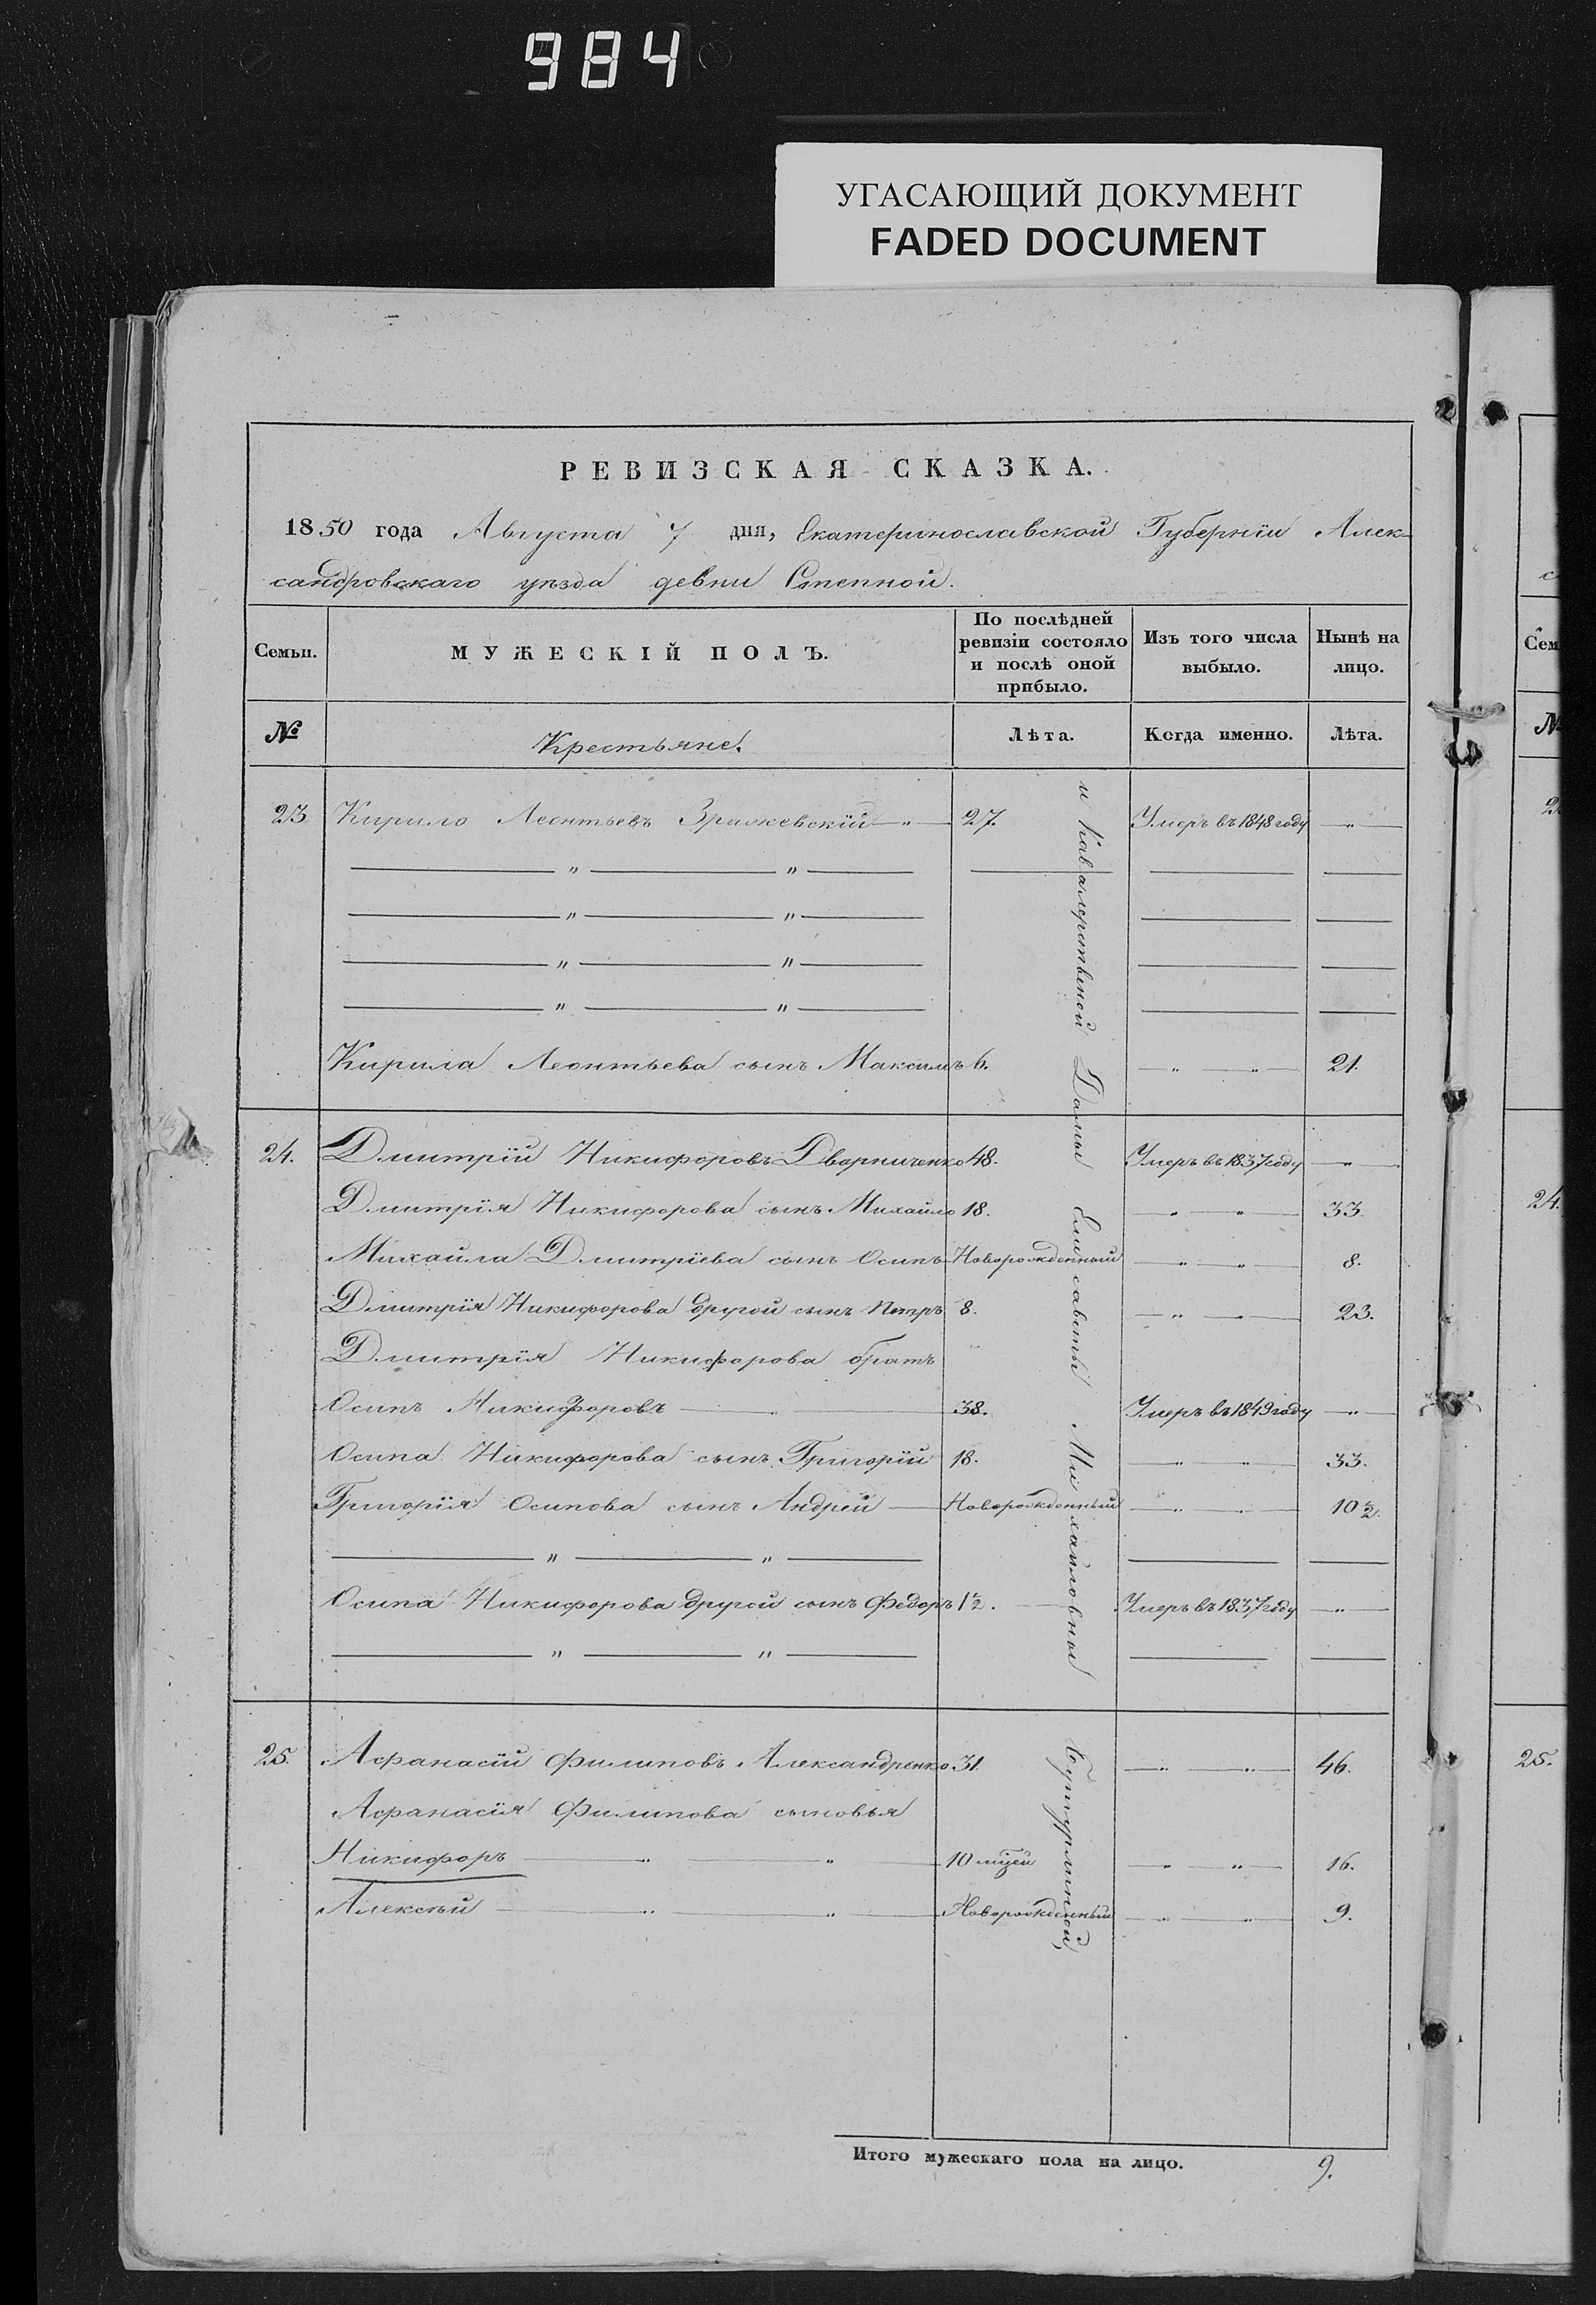 984
УГАСАЮЩИЙ ДОКУМЕНТ
FADED DOCUMENT
РЕВИЗСКАЯ СКАЗКА.
1850 года Августа 7 дня, Екатеринославской Губернiи Алек-
сандровскаго уѣзда девни Степной.
Семьи. МУЖЕСКIЙ ПОЛЪ. По послѣдней ревизiи состояло и послѣ оной прибыло. Изъ того числа выбыло. Нынѣ на лицо.
№ Крестьяне. Лѣта. Когда именно. Лѣта.
23. Кирило Леонтьевъ Зражевскiй — " — 27. Умеръ въ 1848 году — " —
— " — " —
— " — " —
— " — " —
— " — " —
Кирила Леонтьева сынъ Максимъ 6. — " — " — 21.
24. Дмитрiй Никифоровъ Дворниченко 48. Умеръ въ 1837 году — " —
Дмитрiя Никифорова сынъ Михайло 18. — " — " — 33.
Михайла Дмитрiева сынъ Осипъ Новорожденный — " — " — 8.
Дмитрiя Никифорова другой сынъ Петръ 8. — " — " — 23.
Дмитрiя Никифорова братъ
Осипъ Никифоровъ — " — 38. Умеръ въ 1849 году — " —
Осипа Никифорова сынъ Григорiй 18. — " — " — 33.
Григорiя Осипова сынъ Андрей — Новорожденный — " — " — 10 ½.
— " — " —
Осипа Никифорова другой сынъ Федоръ 1½. — Умеръ въ 1837 году — " —
— " — " —
25. Афанасiй Филиповъ Александренко 31. — " — " — 46.
Афанасiя Филипова сыновья
Никифоръ — " — " — 10 мцей — " — " — 16.
Алексѣй — " — " — Новорожденный — " — " — 9.
и Кавалерственой Дамы Елисаветы Михайловны Бутурлиной,
Итого мужескаго пола на лицо. 9.
Сем
№
24.
25.